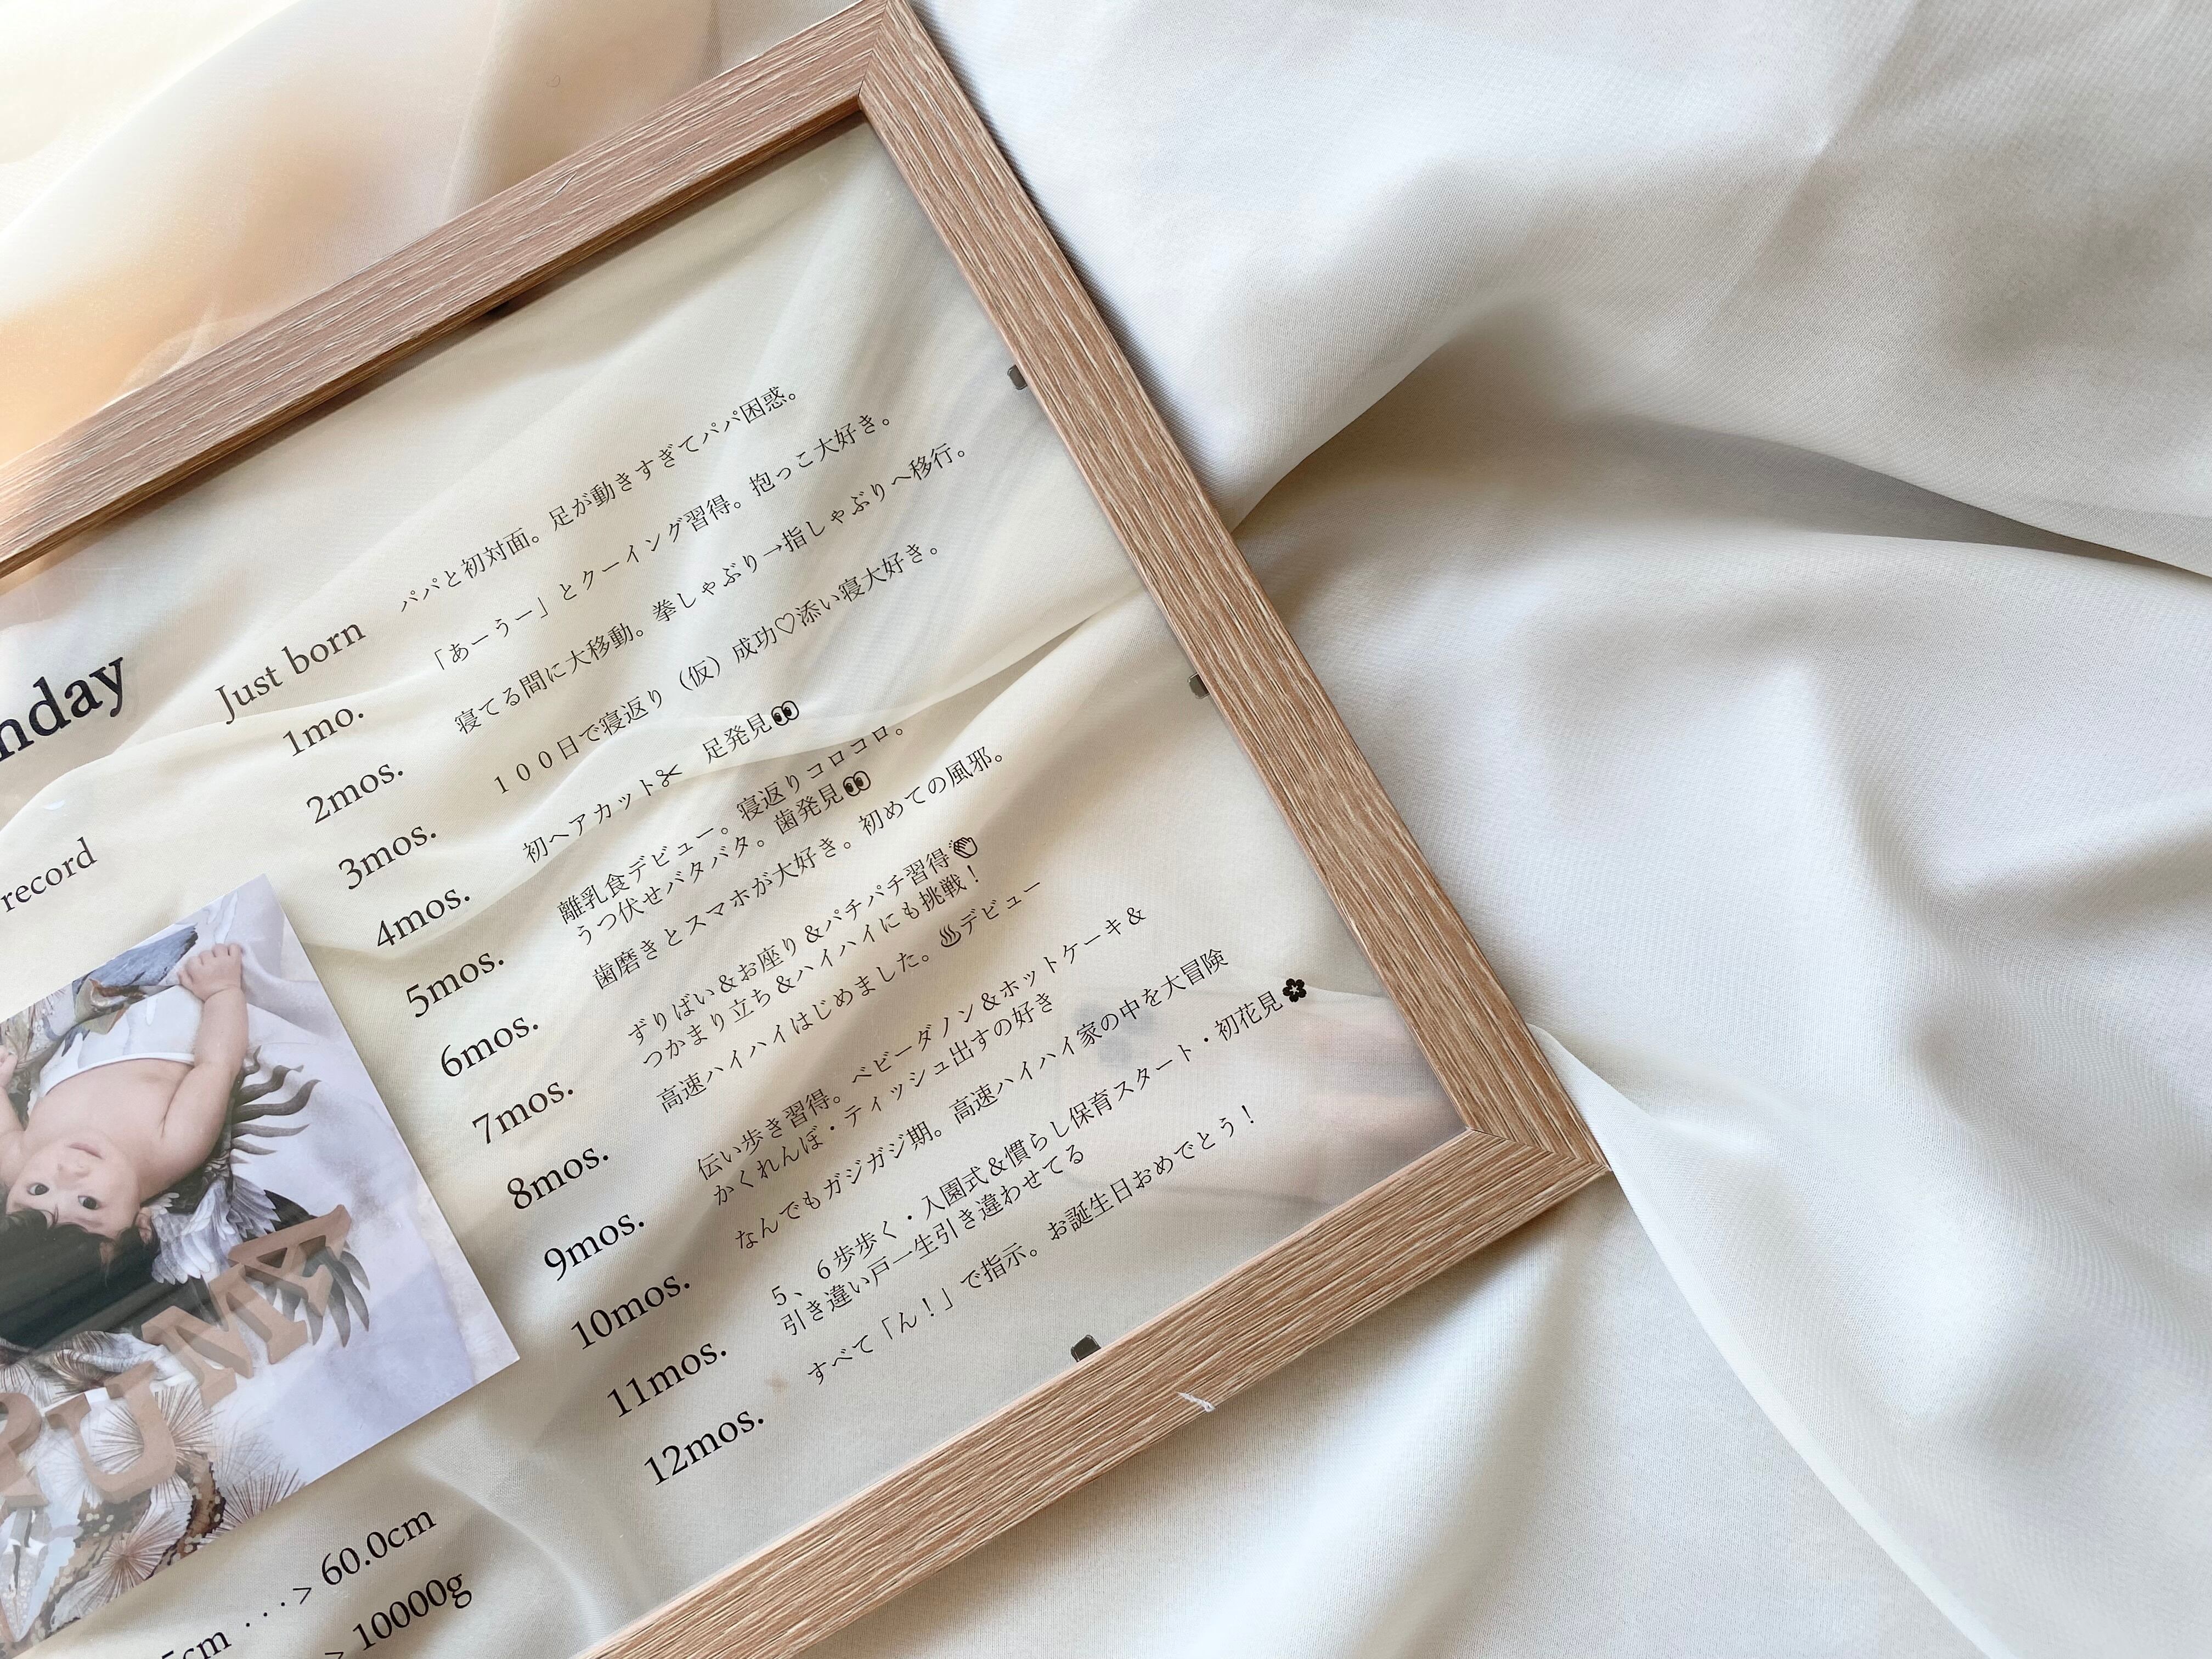 nday
record
Just born パパと初対面。足が動きすぎてパパ困惑。
1mo. 「あーうー」とクーイング習得。抱っこ大好き。
2mos. 寝てる間に大移動。拳しゃぶり→指しゃぶりへ移行。
3mos. １００日で寝返り（仮）成功♡添い寝大好き。
4mos. 初ヘアカット✂ 足発見👀
5mos. 離乳食デビュー。寝返りコロコロ。
うつ伏せバタバタ。歯発見👀
6mos. 歯磨きとスマホが大好き。初めての風邪。
7mos. ずりばい＆お座り＆パチパチ習得👏
つかまり立ち＆ハイハイにも挑戦！
8mos. 高速ハイハイはじめました。♨デビュー
9mos. 伝い歩き習得。ベビーダノン＆ホットケーキ＆
かくれんぼ・ティッシュ出すの好き
10mos. なんでもガジガジ期。高速ハイハイ家の中を大冒険
11mos. ５、６歩歩く・入園式＆慣らし保育スタート・初花見✿
引き違い戸一生引き違わせてる
12mos. すべて「ん！」で指示。お誕生日おめでとう！
UMA
5cm ･･･> 60.0cm
> 10000g